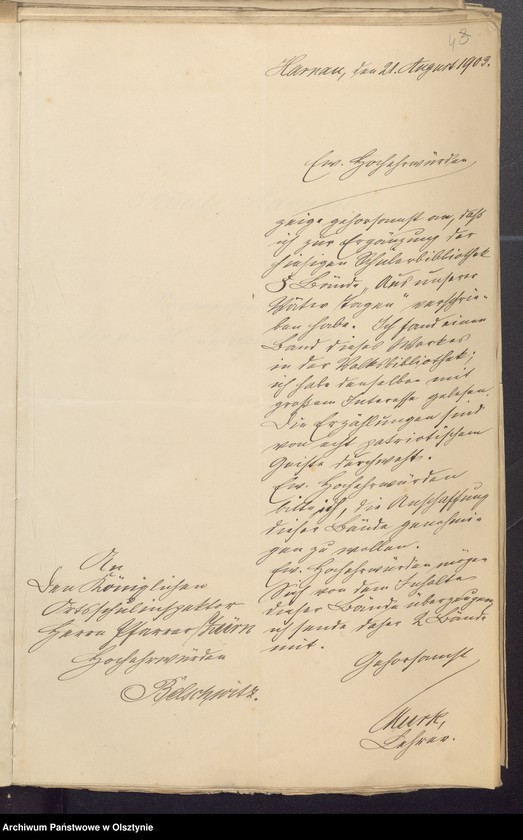 48
Harnau, den 21. August 1903.
Ew. Hochehrwürden
zeige gehorsamst an, daß
ich zur Ergänzung der
hiesigen Schülerbibliothek
5 Bände „Aus unserer
Väter Tagen" verschrie-
ben habe. Ich fand einen
Band dieses Werkes
in der Volksbibliothek;
ich habe denselben mit
großem Interesse gelesen.
Die Erzählungen sind
von echt patriotischem
Geiste durchweht.
Ew. Hochehrwürden
bitte ich, die Anschaffung
dieser Bände genehmi-
gen zu wollen.
Ew. Hochehrwürden mögen
Sich von dem Inhalte
dieser Bände überzeugen,
ich sende daher 2 Bände
mit.
Gehorsamst
Lehrer.
An
Den Königlichen
Ortsschulinspektor
Herrn Pfarrer
Hochehrwürden
Bélschwitz.
Archiwum Państwowe w Olsztynie